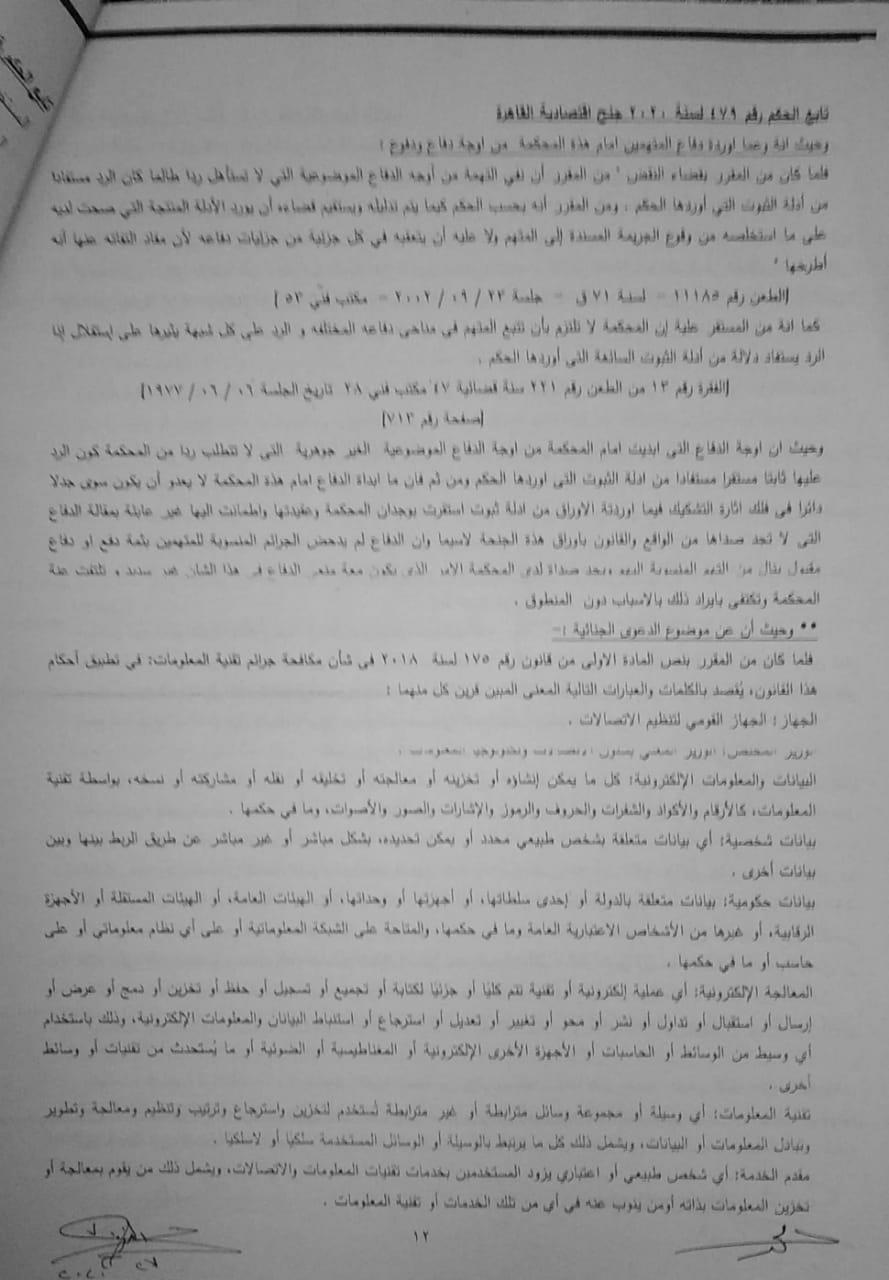 تابع الحكم رقم ٤٧٩ لسنة ٢٠٢٠ جنح اقتصادية القاهرة
وحيث انة وعما اوردة دفاع المتهمين امام هذة المحكمة من اوجة دفاع ودفوع :
فلما كان من المقرر بقضاء النقض " من المقرر أن نفي التهمة من أوجه الدفاع الموضوعية التي لا تستأهل ردا طالما كان الرد مستفادا
من أدلة الثبوت التي أوردها الحكم . ومن المقرر أنه بحسب الحكم كيما يتم تدليله ويستقيم قضاءه أن يورد الأدلة المنتجة التي صحت لديه
على ما استخلصه من وقوع الجريمة المسندة إلى المتهم ولا عليه أن يتعقبه في كل جزئية من جزئيات دفاعه لأن مفاد التفاته عنها أنه
أطرحها "
[الطعن رقم ١١١٨٥ - لسنة ٧١ ق - جلسة ٢٣ / ٠٩ / ٢٠٠٢ - مكتب فني ٥٣ ]
كما انة من المستقر علية إن المحكمة لا تلتزم بأن تتبع المتهم في مناحى دفاعه المختلفه و الرد على كل شبهة يثيرها على إستقلال إذا
الرد يستفاد دلالة من أدلة الثبوت السائغة التى أوردها الحكم .
[الفقرة رقم ١٣ من الطعن رقم ٢٢١ سنة قضائية ٤٧ مكتب فني ٢٨ تاريخ الجلسة ٠٦ / ٠٦ / ١٩٧٧]
[صفحة رقم ٧١٣]
وحيث ان اوجة الدفاع التى ابديت امام المحكمة من اوجة الدفاع الموضوعية الغير جوهرية التى لا تتطلب ردا من المحكمة كون الرد
عليها ثابتا مستقرا مستفادا من ادلة الثبوت التى اوردها الحكم ومن ثم فان ما ابداة الدفاع امام هذة المحكمة لا يعدو أن يكون سوى جدلا
دائرا فى فلك اثارة التشكيك فيما اوردتة الاوراق من ادلة ثبوت استقرت بوجدان المحكمة وعقيدتها واطمانت اليها غير عابئة بمقالة الدفاع
التى لا تجد صداها من الواقع والقانون باوراق هذة الجنحة لاسيما وان الدفاع لم يدحض الجرائم المنسوبة للمتهمين بثمة دفع او دفاع
مقبول ينال من التهم المنسوبة اليهم ويجد صداة لدى المحكمة الامر الذى يكون معة منعى الدفاع فى هذا الشان غير سديد و تلتفت عنة
المحكمة وتكتفى بايراد ذلك بالاسباب دون المنطوق .
** وحيث أن عن موضوع الدعوى الجنائية :-
فلما كان من المقرر بنص المادة الاولى من قانون رقم ١٧٥ لسنة ٢٠١٨ فى شأن مكافحة جرائم تقنية المعلومات: في تطبيق أحكام
هذا القانون، يُقصد بالكلمات والعبارات التالية المعنى المبين قرين كل منهما :
الجهاز : الجهاز القومي لتنظيم الاتصالات .
الوزير المختص: الوزير المعني بشئون الاتصالات وتكنولوجيا المعلومات .
البيانات والمعلومات الإلكترونية: كل ما يمكن إنشاؤه أو تخزينه أو معالجته أو تخليقه أو نقله أو مشاركته أو نسخه، بواسطة تقنية
المعلومات، كالأرقام والأكواد والشفرات والحروف والرموز والإشارات والصور والأصوات، وما في حكمها .
بيانات شخصية: أي بيانات متعلقة بشخص طبيعي محدد أو يمكن تحديده، بشكل مباشر أو غير مباشر عن طريق الربط بينها وبين
بيانات أخرى .
بيانات حكومية: بيانات متعلقة بالدولة أو إحدى سلطاتها، أو أجهزتها أو وحداتها، أو الهيئات العامة، أو الهيئات المستقلة أو الأجهزة
الرقابية، أو غيرها من الأشخاص الاعتبارية العامة وما في حكمها، والمتاحة على الشبكة المعلوماتية أو على أي نظام معلوماتي أو على
حاسب أو ما في حكمها .
المعالجة الإلكترونية: أي عملية إلكترونية أو تقنية تتم كليًا أو جزئيًا لكتابة أو تجميع أو تسجيل أو حفظ أو تخزين أو دمج أو عرض أو
إرسال أو استقبال أو تداول أو نشر أو محو أو تغيير أو تعديل أو استرجاع أو استنباط البيانات والمعلومات الإلكترونية، وذلك باستخدام
أي وسيط من الوسائط أو الحاسبات أو الأجهزة الأخرى الإلكترونية أو المغناطيسية أو الضوئية أو ما يُستحدث من تقنيات أو وسائط
أخرى .
تقنية المعلومات: أي وسيلة أو مجموعة وسائل مترابطة أو غير مترابطة تُستخدم لتخزين واسترجاع وترتيب وتنظيم ومعالجة وتطوير
وتبادل المعلومات أو البيانات، ويشمل ذلك كل ما يرتبط بالوسيلة أو الوسائل المستخدمة سلكيًا أو لاسلكيا .
مقدم الخدمة: أي شخص طبيعي أو اعتباري يزود المستخدمين بخدمات تقنيات المعلومات والاتصالات، ويشمل ذلك من يقوم بمعالجة أو
تخزين المعلومات بذاته أومن ينوب عنه في أي من تلك الخدمات أو تقنية المعلومات .
١٢